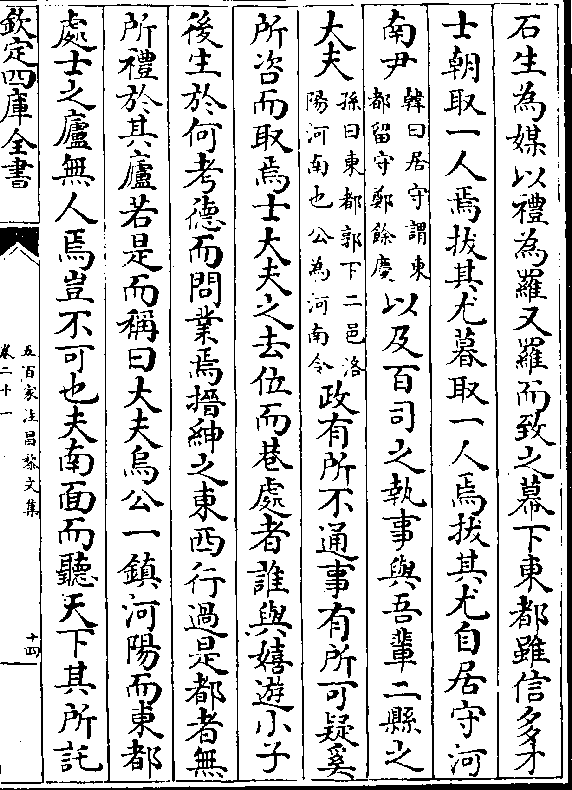 石生為媒以禮為羅又羅而致之幕下東都雖信多才
士朝取一人焉拔其尤暮取一人焉拔其尤自居守河
南尹韓曰居守謂東都留守鄭餘慶以及百司之執事與吾輩二縣之
大夫孫曰東都郭下二邑洛陽河南也公為河南令政有所不通事有所可疑奚
所咨而取焉士大夫之去位而巷處者誰與嬉遊小子
後生於何考德而問業焉搢紳之東西行過是都者無
所禮於其廬若是而稱曰大夫烏公一鎮河陽而東都
處士之廬無人焉豈不可也夫南面而聽天下其所託
欽定四庫全書
五百家注昌黎文集
卷二十一
十四